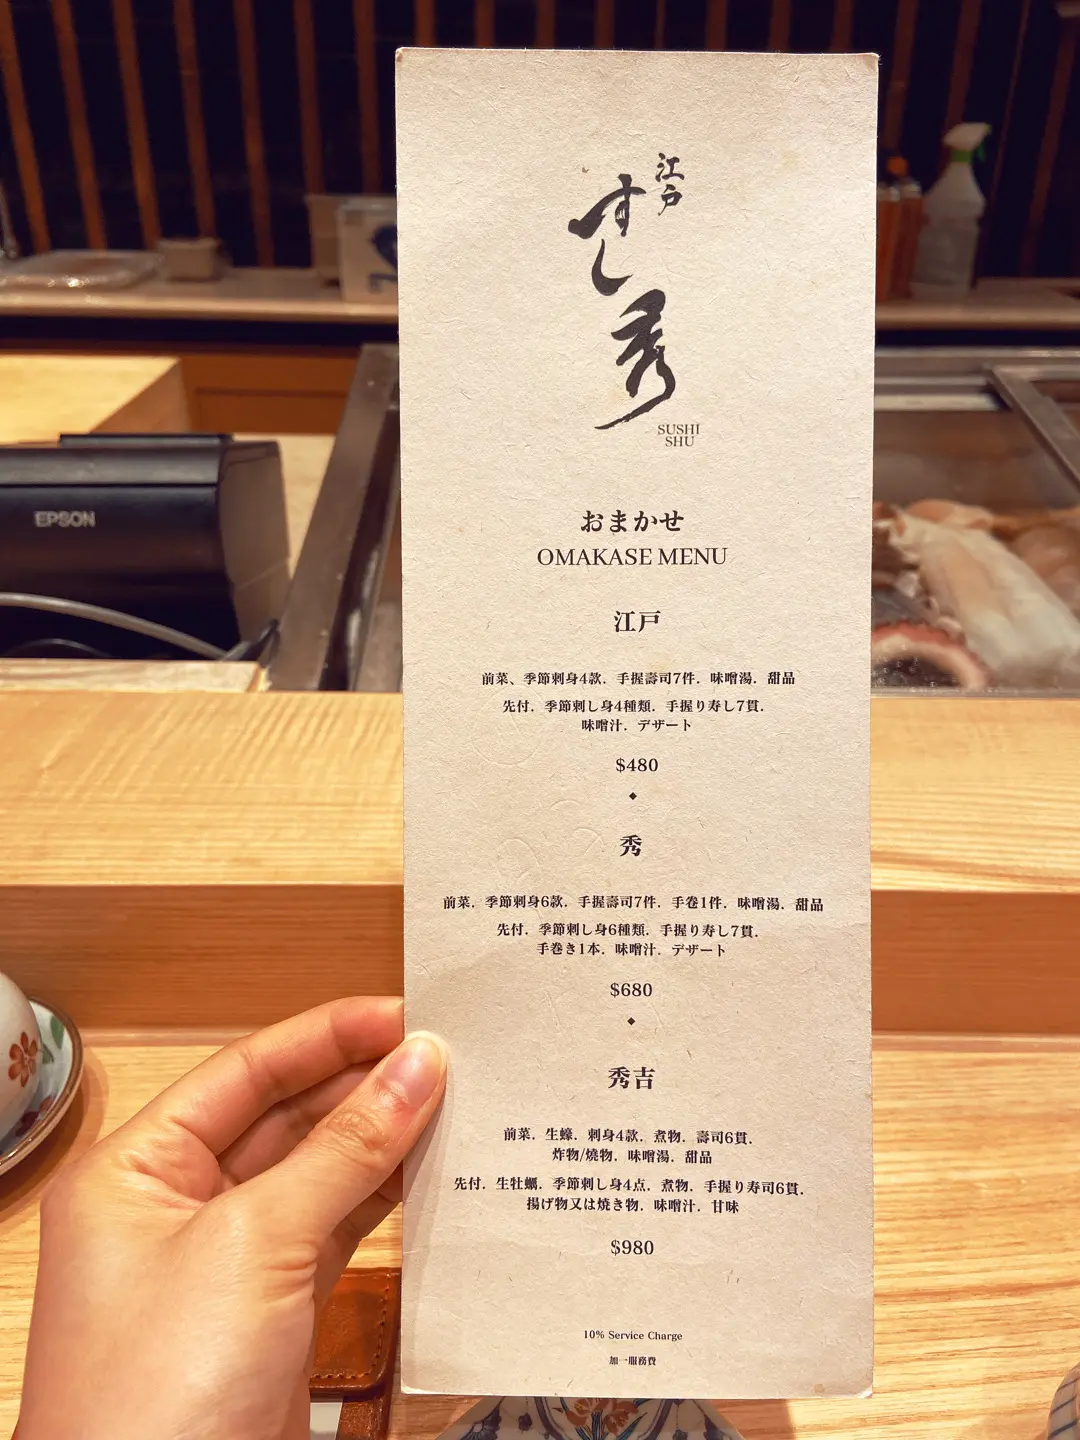 江戸
すし秀
SUSHI
SHU
EPSON
おまかせ
OMAKASE MENU
江戸
前菜、季節刺身4款．手握壽司7件．味噌湯．甜品
先付．季節刺し身4種類．手握り寿し7貫．
味噌汁．デザート
$480
秀
前菜．季節刺身6款．手握壽司7件．手卷1件．味噌湯．甜品
先付．季節刺し身6種類．手握り寿し7貫．
手巻き1本．味噌汁．デザート
$680
秀吉
前菜．生蠔．刺身4款．煮物．壽司6貫．
炸物/燒物．味噌湯．甜品
先付．生牡蠣．季節刺し身4点．煮物．手握り寿司6貫．
揚げ物又は焼き物．味噌汁．甘味
$980
10% Service Charge
加一服務費